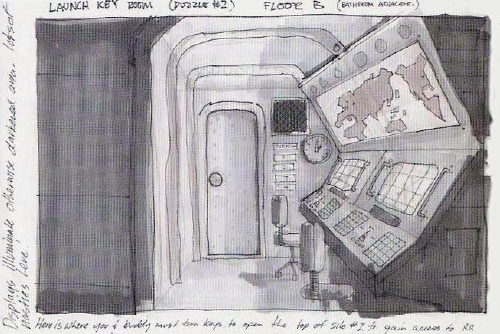 LAUNCH KEY ROOM (PUZZLE #2) FLOOR B (BATHROOM ADJACENT.)
Displays illuminate otherwise darkened area.
Here is where you & buddy must turn keys to open the top of silo #1 to gain access to RR